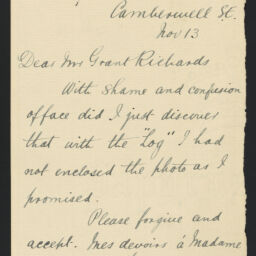 Camberwell S.E.
Nov 13
Dear Mr Grant Richards
With shame and confusion
of face did I just discover
that with the "Log" I had
not enclosed the photo as I
promised.
Please forgive and
accept. Mes devoirs á Madame